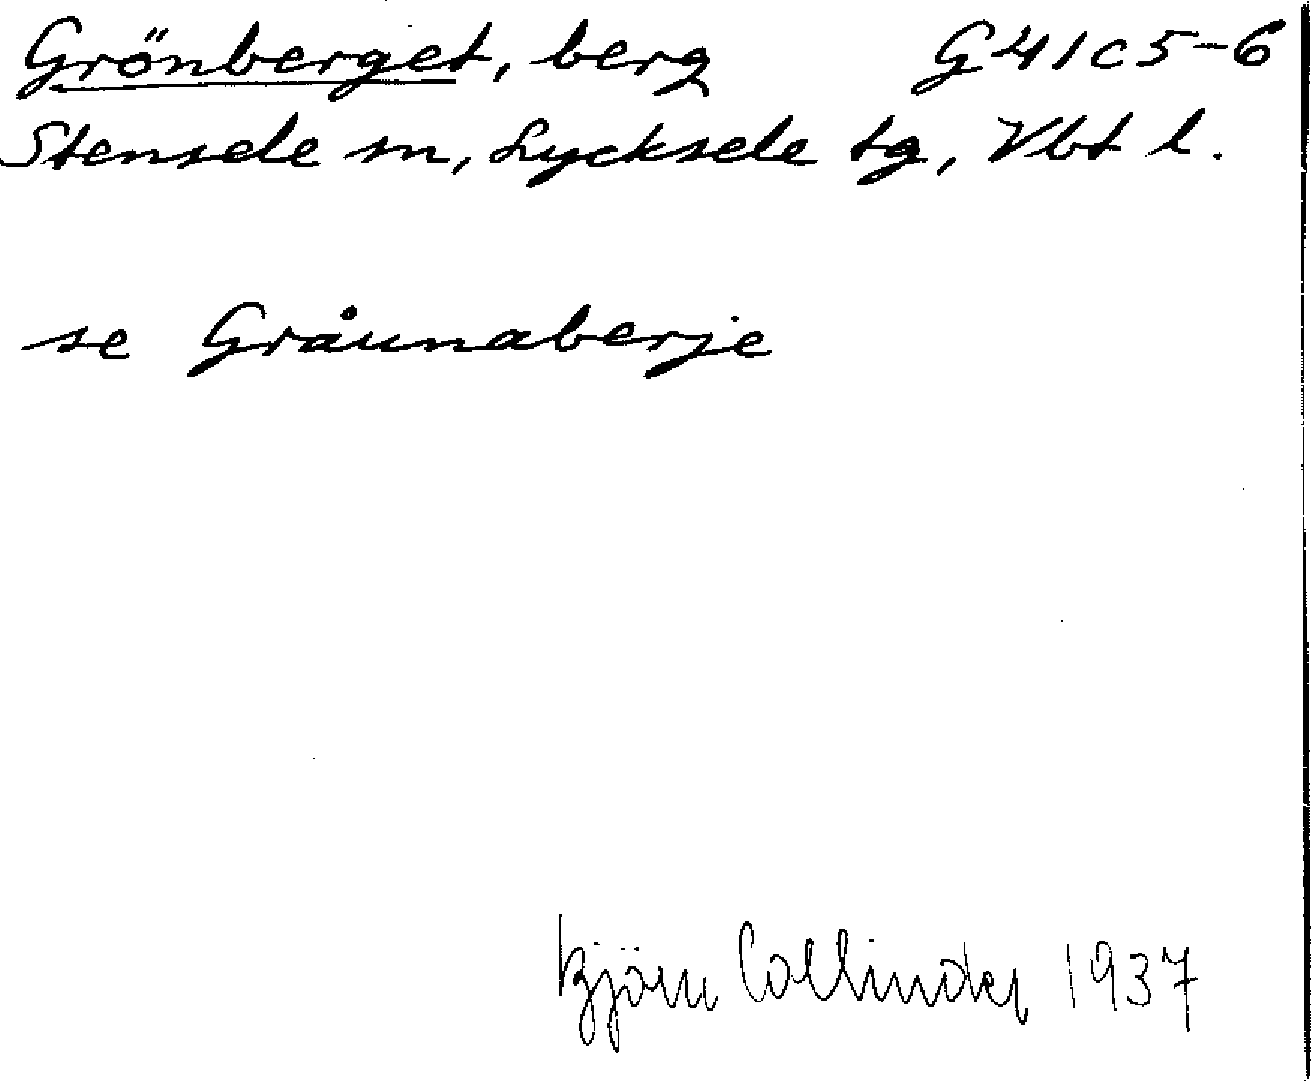 Grönberget, berg G41c5-6
Stensele sn, Lycksele tg, Vbt l.
se Gråunaberje
Björn Collinder 1937